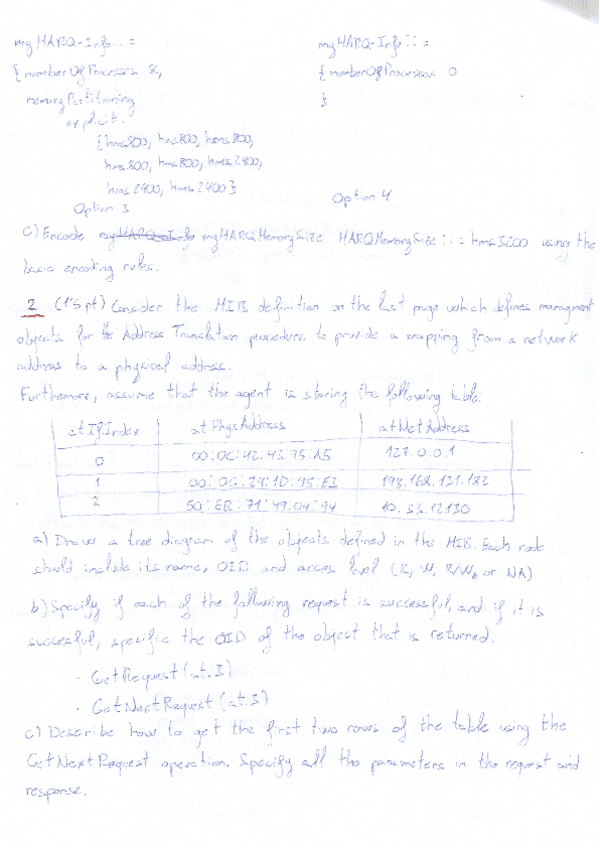 myHARQ-Info::=
{ numberOfProcesses 8,
memoryPartitioning
explicit:
{hms800, hms800, hms800,
hms800, hms800, hms2400,
hms2400, hms2400 }
Option 3
myHARQ-Info::=
{ numberOfProcesses 0
}
Option 4
c) Encode myHARQMemorySize HARQMemorySize::= hms3200 using the
basic encoding rules.
2 (1'5 pt) Consider the MIB definition on the last page which defines managment
objects for the Address Translation procedure to provide a mapping from a network
address to a physical address.
Furthermore, assume that the agent is storing the following table:
atIfIndex atPhysAddress atNetAddress
0 00:0C:42:43:95:A5 127.0.0.1
1 00:0C:29:1D:95:E3 193.168.131.182
2 50:EB:71:49:04:94 10.33.12.130
a) Draw a tree diagram of the objects defined in the MIB. Each node
should include its name, OID and access level (R, W, R/W, or NA)
b) Specify if each of the following request is successful, and if it is
succesful, specific the OID of the object that is returned.
- GetRequest (at.3)
- GetNextRequest (at.3)
c) Describe how to get the first two rows of the table using the
GetNextRequest operation. Specify all the parameters in the request and
response.